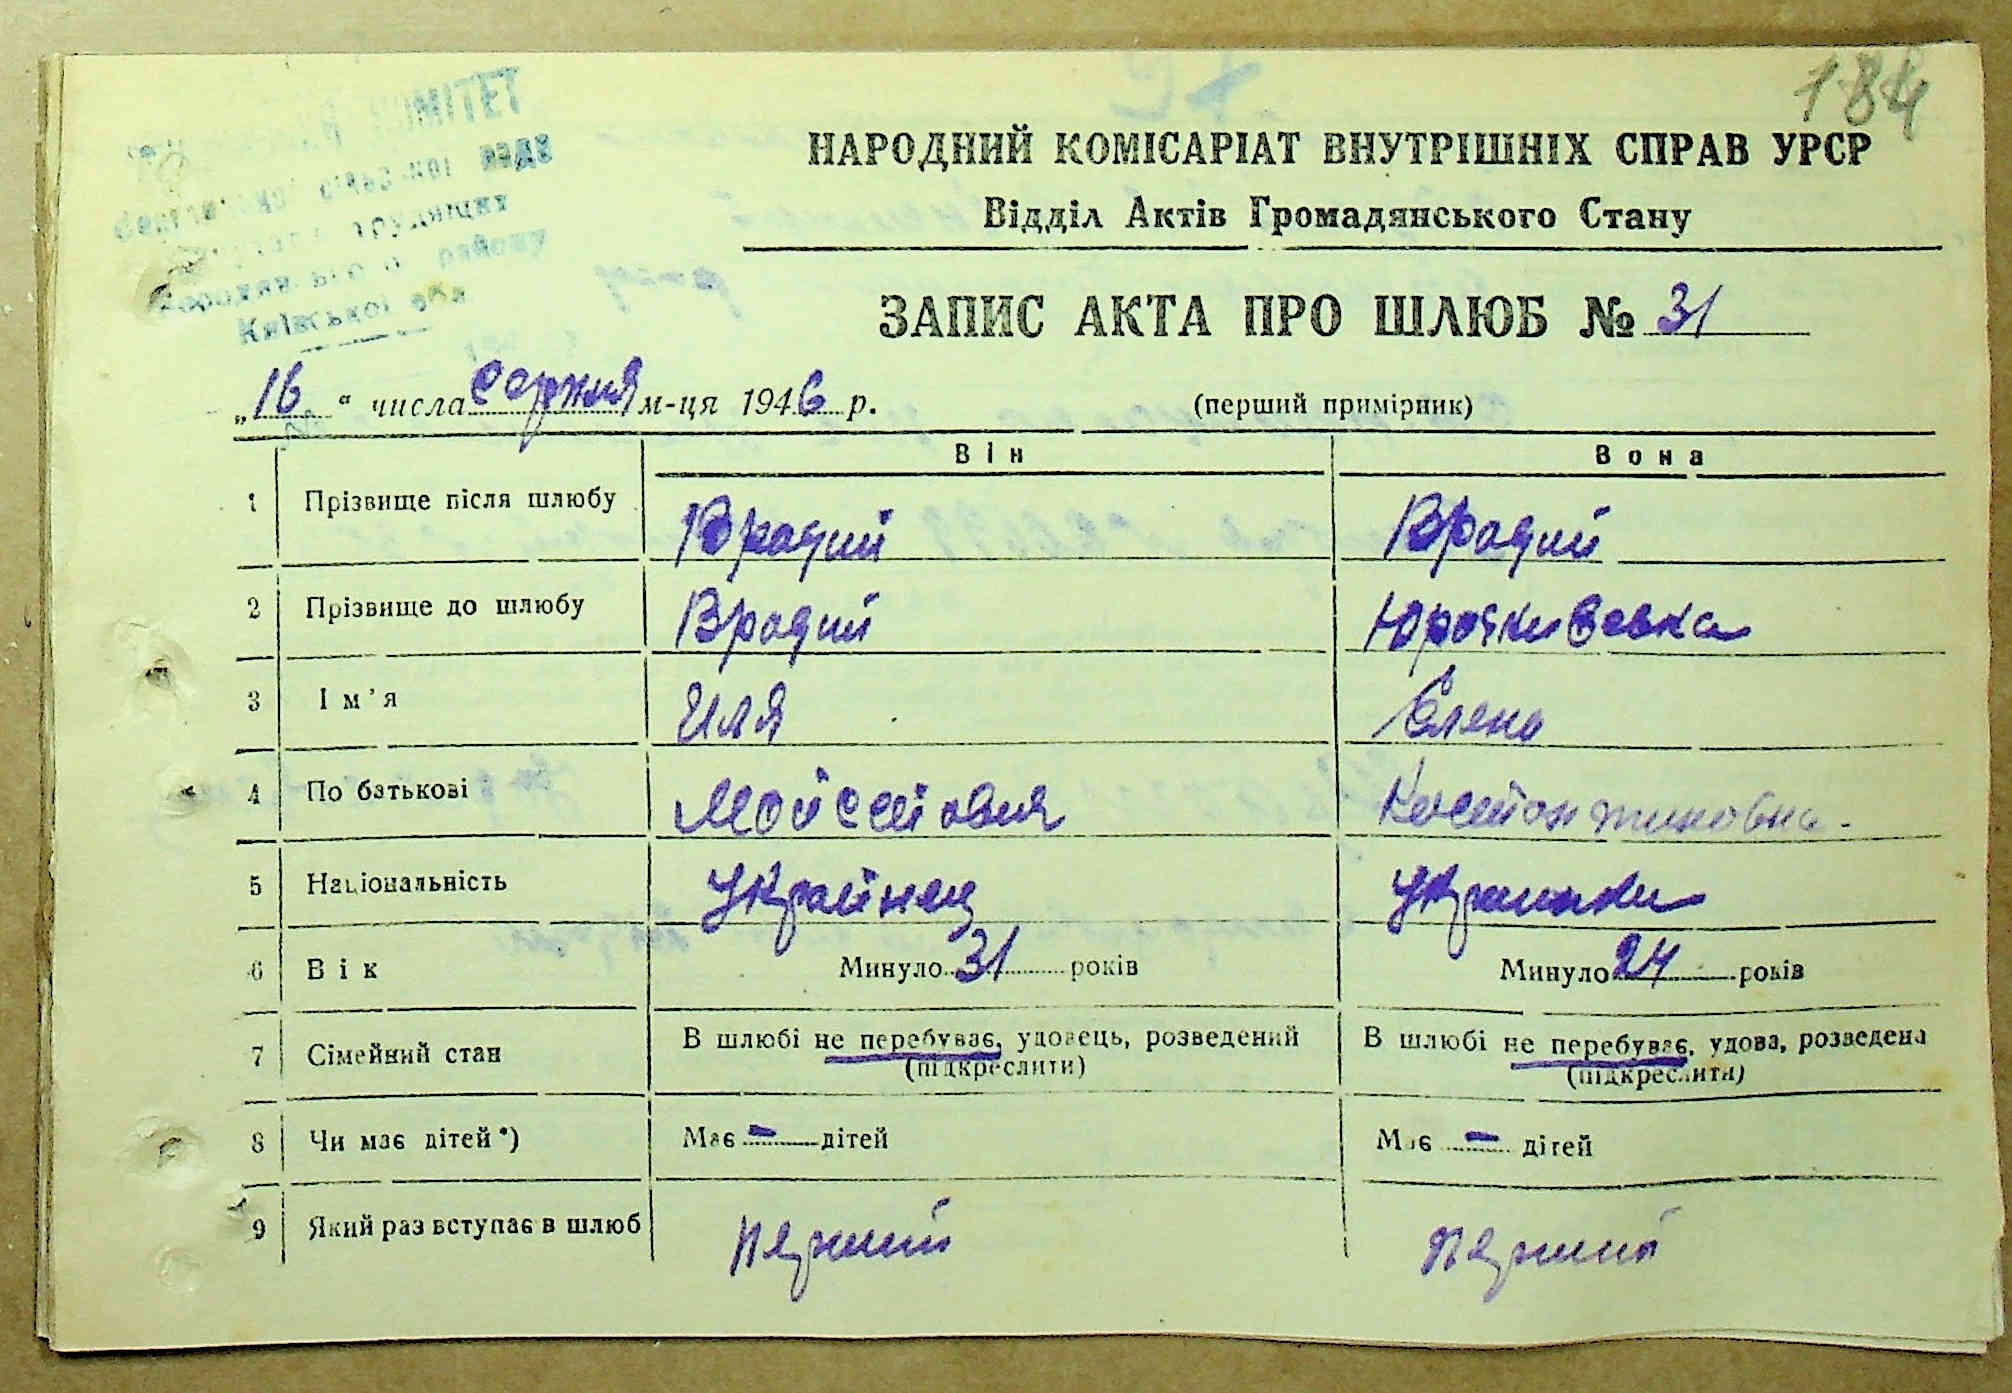 184
КОМІТЕТ
району
Київської обл
НАРОДНИЙ КОМІСАРІАТ ВНУТРІШНІХ СПРАВ УРСР
Відділ Актів Громадянського Стану
ЗАПИС АКТА ПРО ШЛЮБ № 31
„16“ числа серпня м-ця 1946 р. (перший примірник)
Він Вона
1 Прізвище після шлюбу Врадий Врадий
2 Прізвище до шлюбу Врадий
3 Ім'я Иля Елена
4 По батькові Мойсейовия Костонтиновна
5 Національність Украйнец Украинка
6 Вік Минуло 31 років Минуло 24 років
7 Сімейний стан В шлюбі не перебуває, удовець, розведений (підкреслити) В шлюбі не перебуває, удова, розведена (підкреслити)
8 Чи має дітей*) Має - дітей Має - дітей
9 Який раз вступає в шлюб перший перший